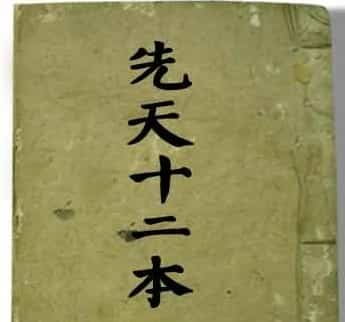 先天十二本